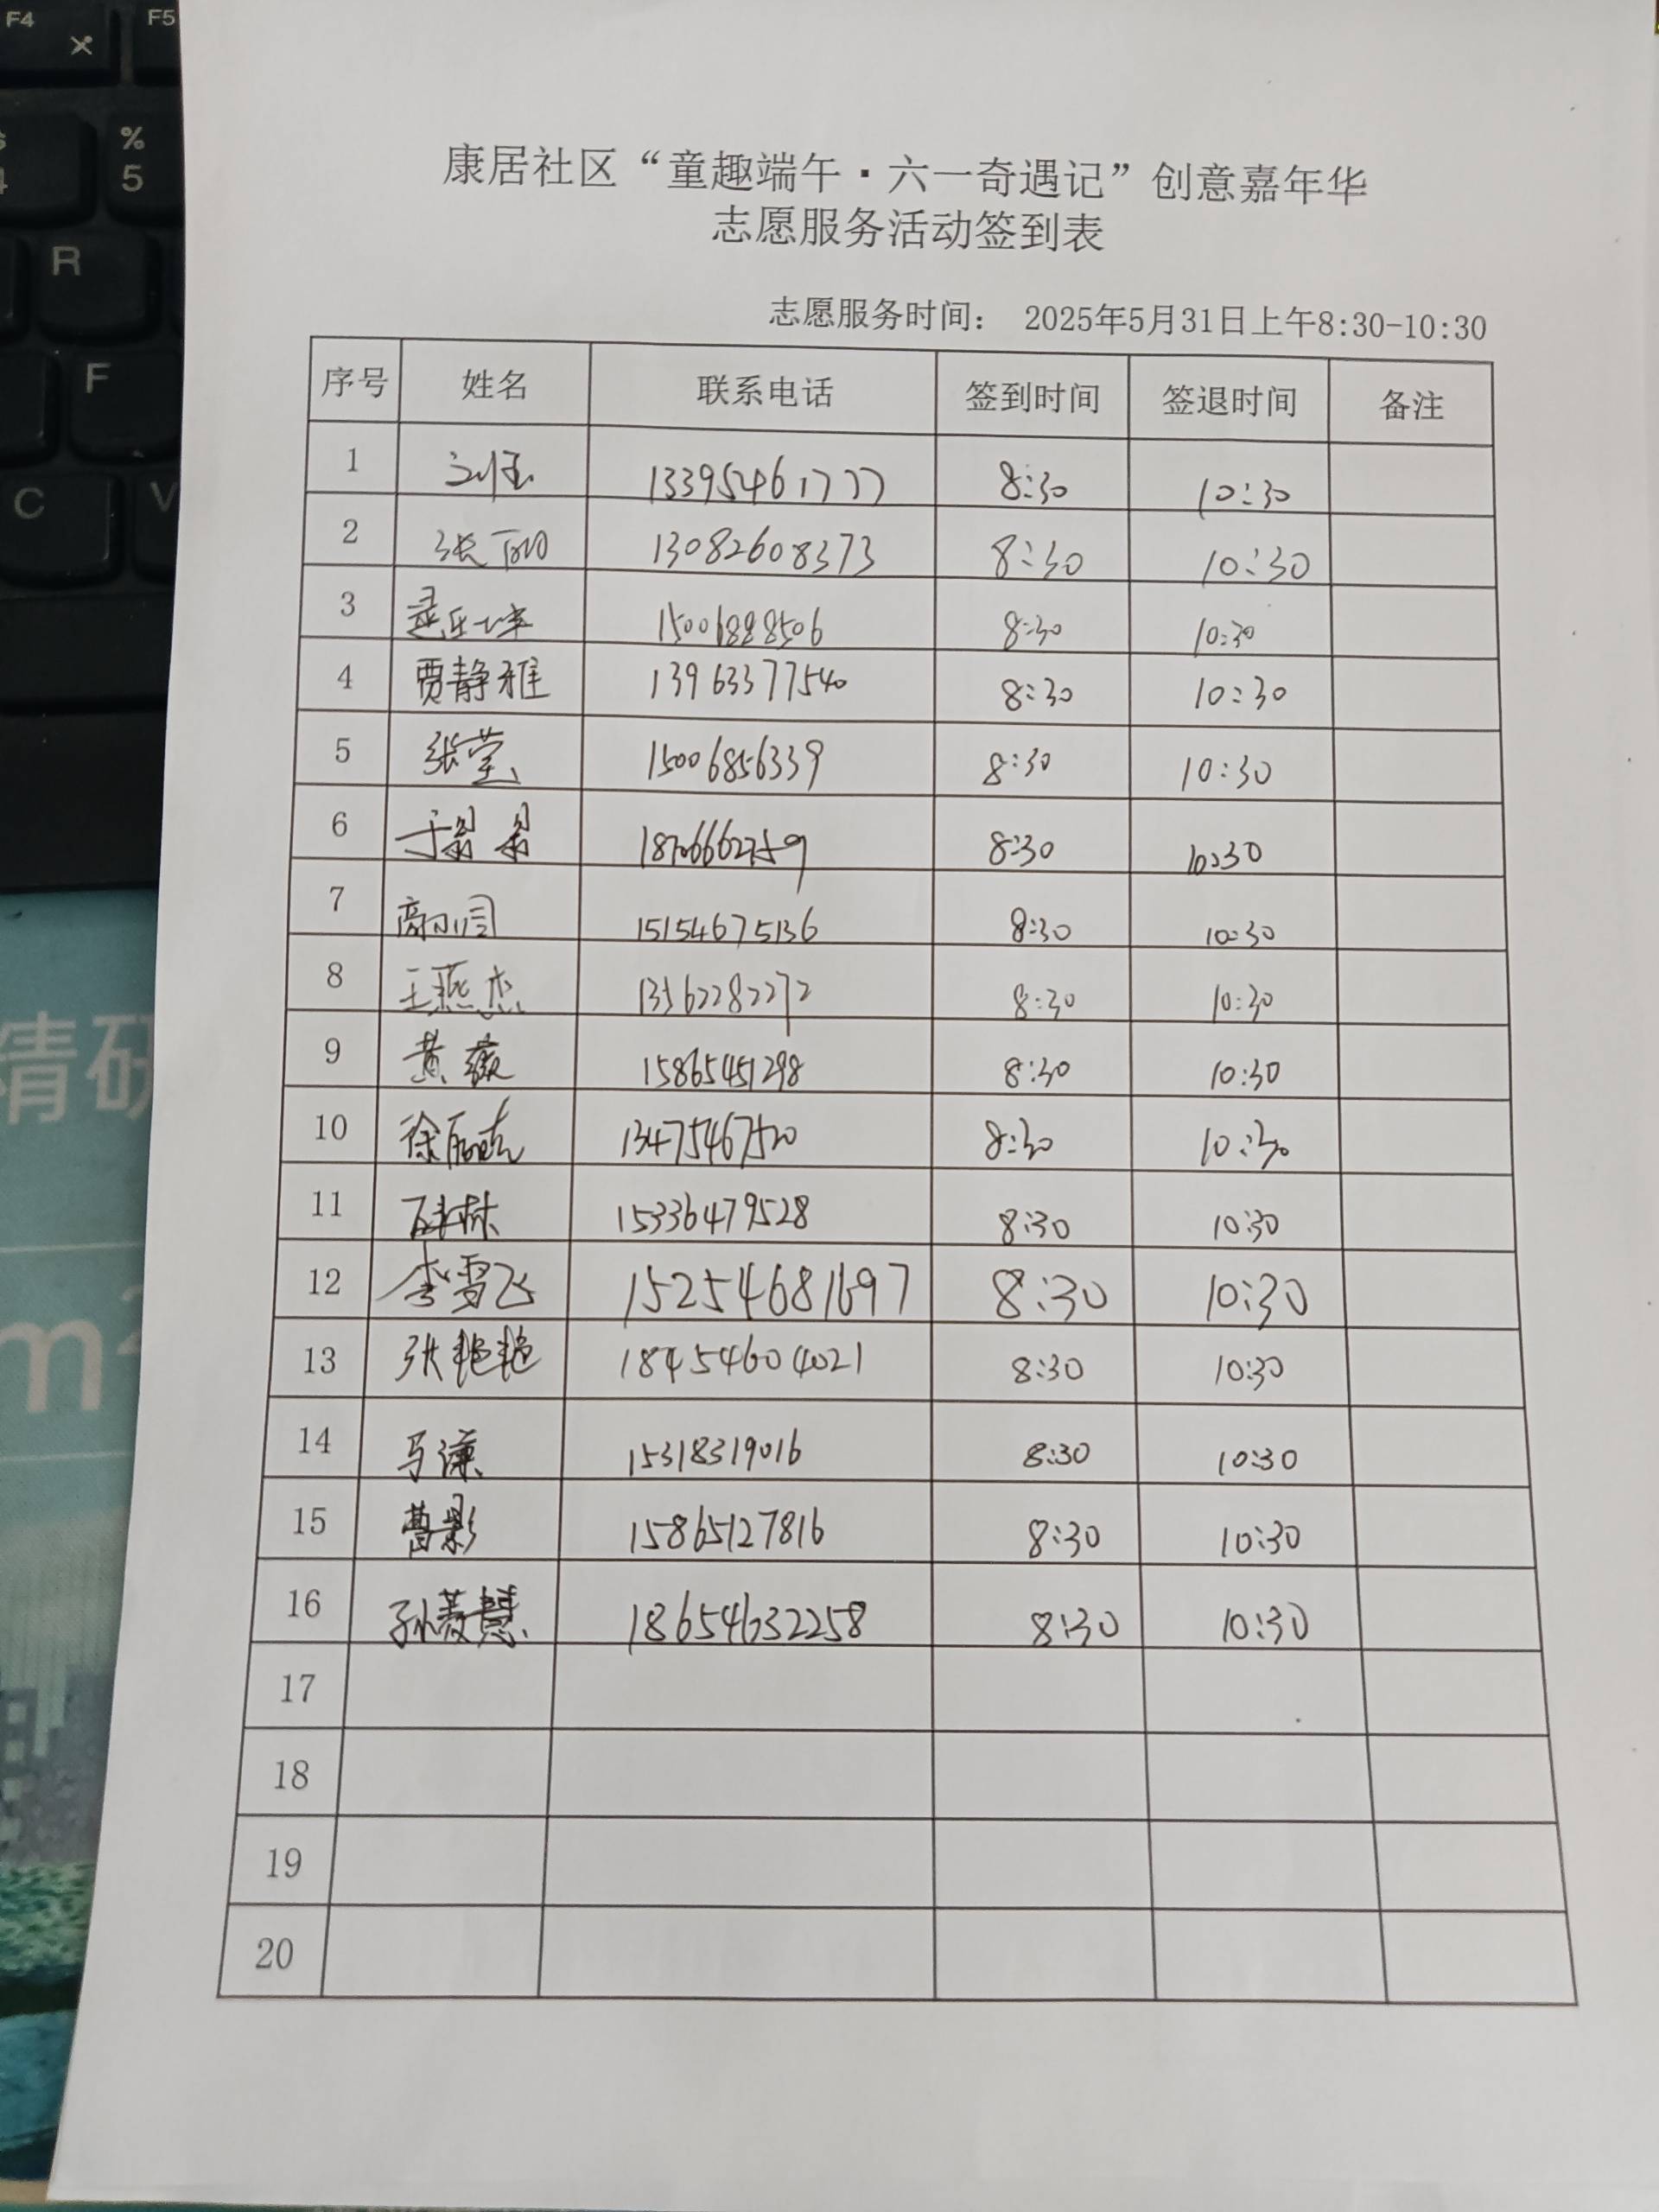 F4
F5
%
5
4
R
F
C
V
精研
m²
康居社区“童趣端午·六一奇遇记”创意嘉年华
志愿服务活动签到表
志愿服务时间： 2025年5月31日上午8:30-10:30
序号 姓名 联系电话 签到时间 签退时间 备注
1 刘玉 13395461777 8:30 10:30
2 张丽 13082608373 8:30 10:30
3 15006888506 8:30 10:30
4 贾静雅 13963377540 8:30 10:30
5 张莹 15006856339 8:30 10:30
6 8:30 10:30
7 15154675136 8:30 10:30
8 王燕杰 13562282272 8:30 10:30
9 黄薇 15865451298 8:30 10:30
10 13475467520 8:30 10:30
11 15336479528 8:30 10:30
12 李雪飞 15254681697 8:30 10:30
13 张艳艳 18454604021 8:30 10:30
14 马谦 15318319016 8:30 10:30
15 曹影 15865127816 8:30 10:30
16 孙菱慧 18654632258 8:30 10:30
17
18
19
20